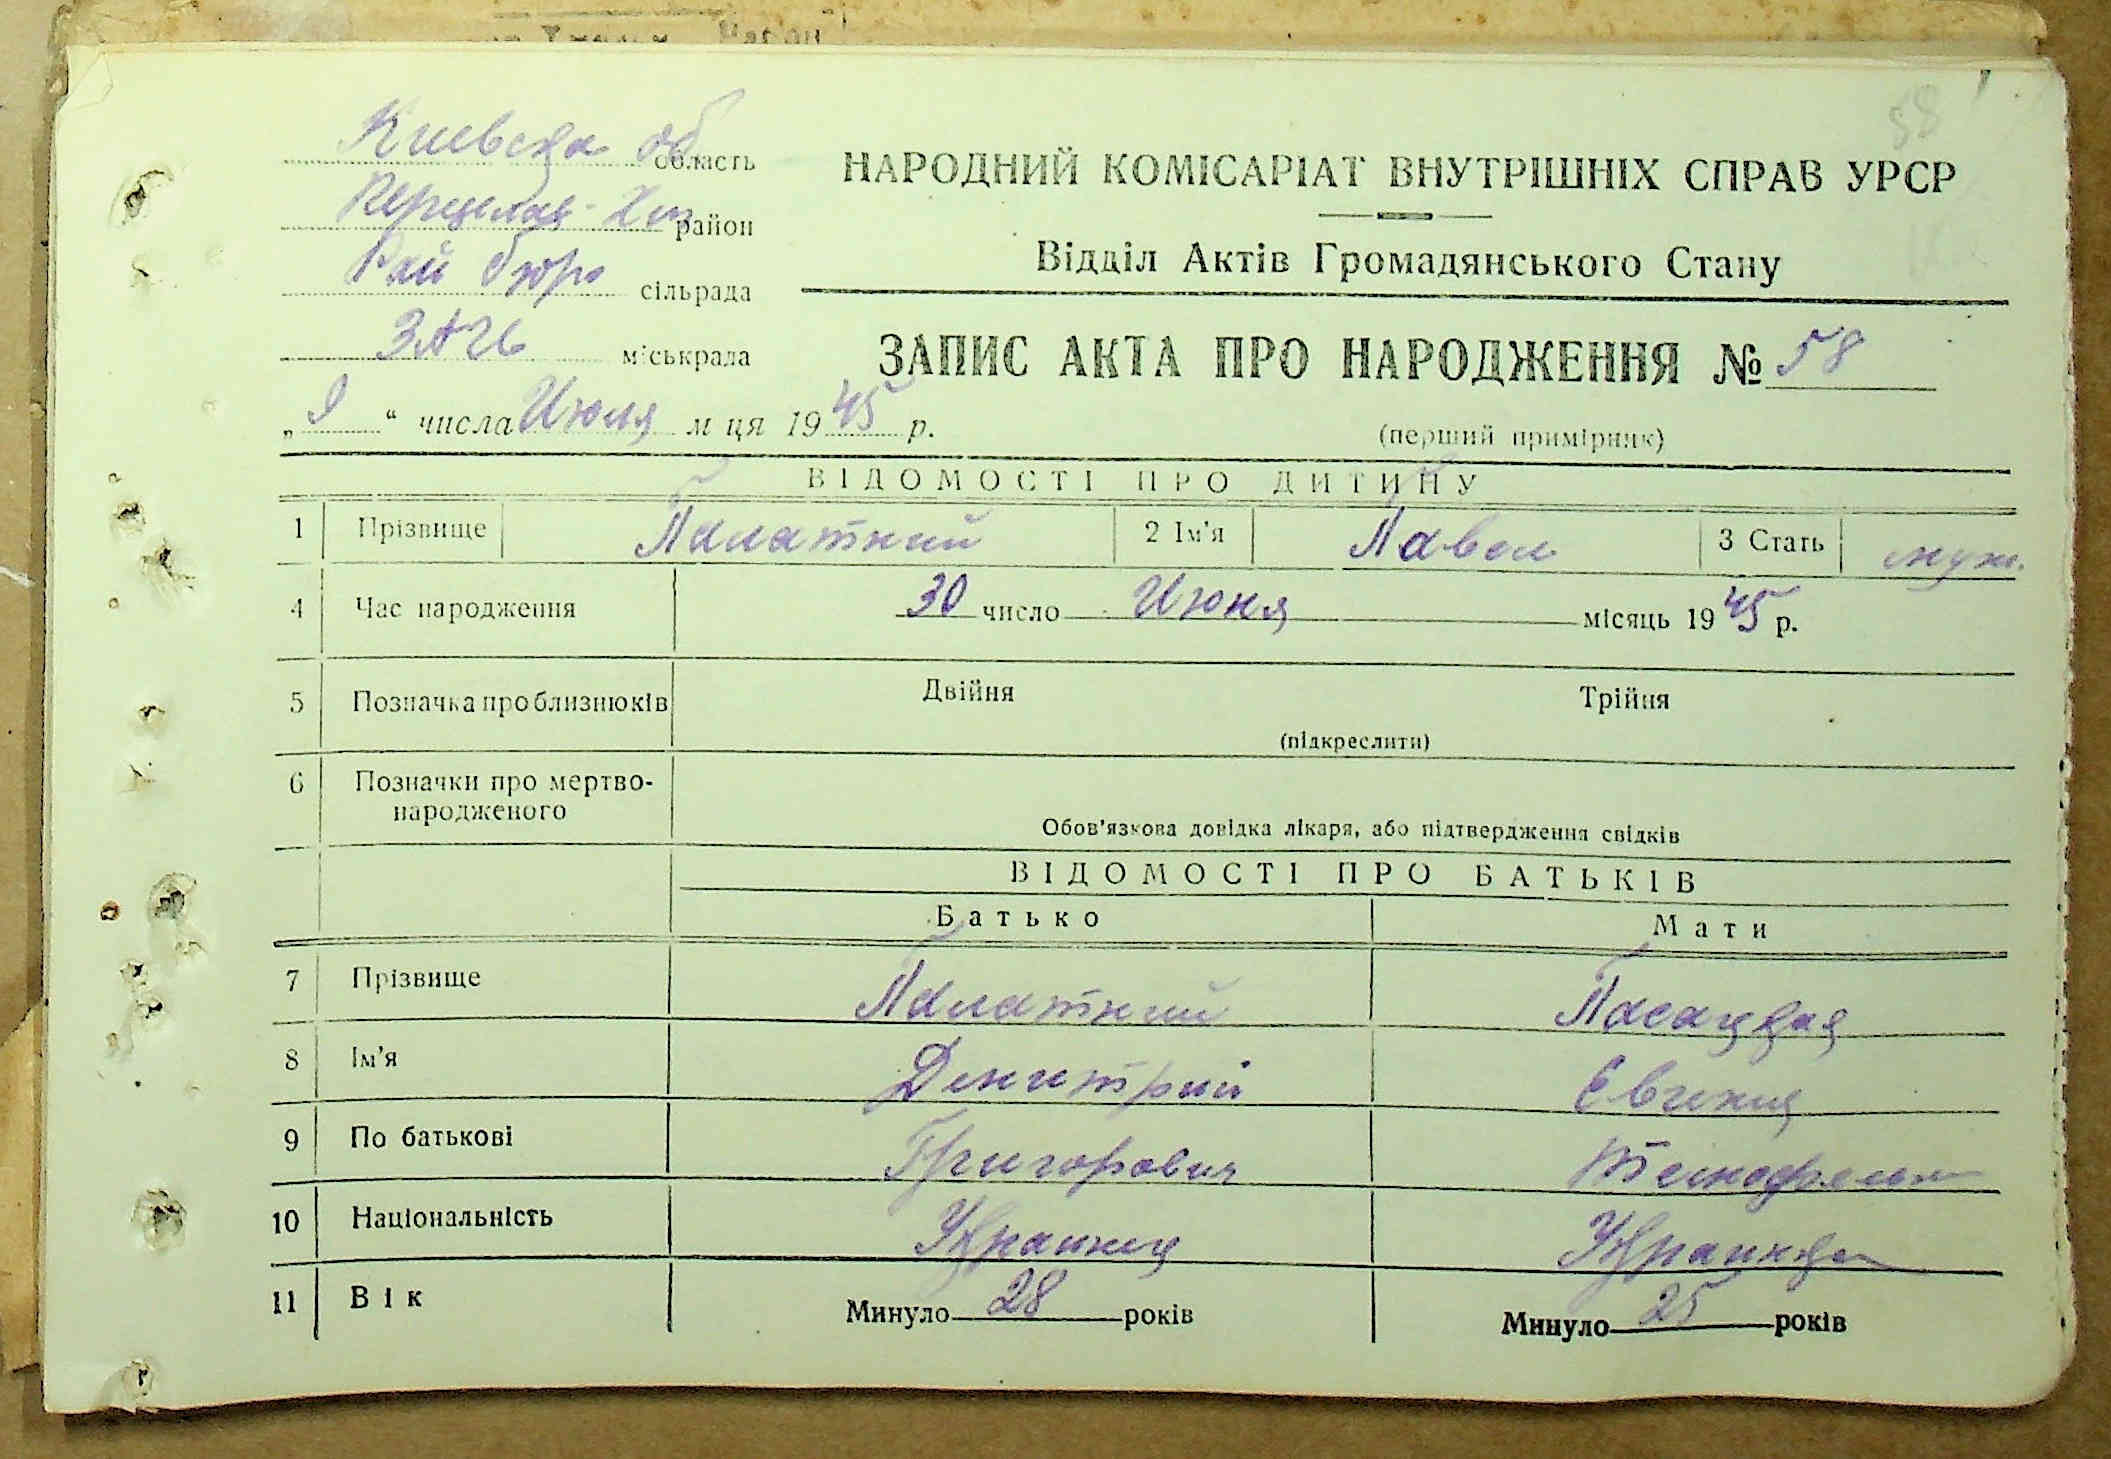 58
Киевска об область
район
Рай бюро сільрада
ЗАГС міськрада
НАРОДНИЙ КОМІСАРІАТ ВНУТРІШНІХ СПРАВ УРСР
Відділ Актів Громадянського Стану
ЗАПИС АКТА ПРО НАРОДЖЕННЯ № 58
„ 9 “ числа Июля м ця 1945 р.
(перший примірник)
ВІДОМОСТІ ПРО ДИТИНУ
1 Прізвище Палатний 2 Ім'я Павел 3 Стать муж.
4 Час народження 30 число Июня місяць 1945 р.
5 Позначка про близнюків Двійня Трійня
(підкреслити)
6 Позначки про мертво-
народженого
Обов'язкова довідка лікаря, або підтвердження свідків
ВІДОМОСТІ ПРО БАТЬКІВ
Батько Мати
7 Прізвище Палатний
8 Ім'я Дмитрий Евгения
9 По батькові Григорович
10 Національність Украинец Украинка
11 Вік Минуло 28 років Минуло 25 років